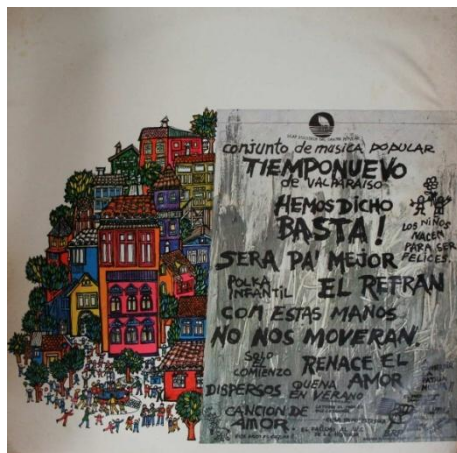 conjunto de musica POPULAR
TIEMPONUEVO
de VALPARAISO
HEMOS DICHO
BASTA!
LOS NIÑOS
NACEN
PARA SER
FELICES.
SERA PA' MEJOR
POLKA
INFANTIL
EL REFRAN
CON ESTAS MANOS
NO NOS MOVERAN.
SOLO
COMIENZO
RENACE EL
AMOR
DISPERSOS
QUENA
EN VERANO
CANCION DE
AMOR